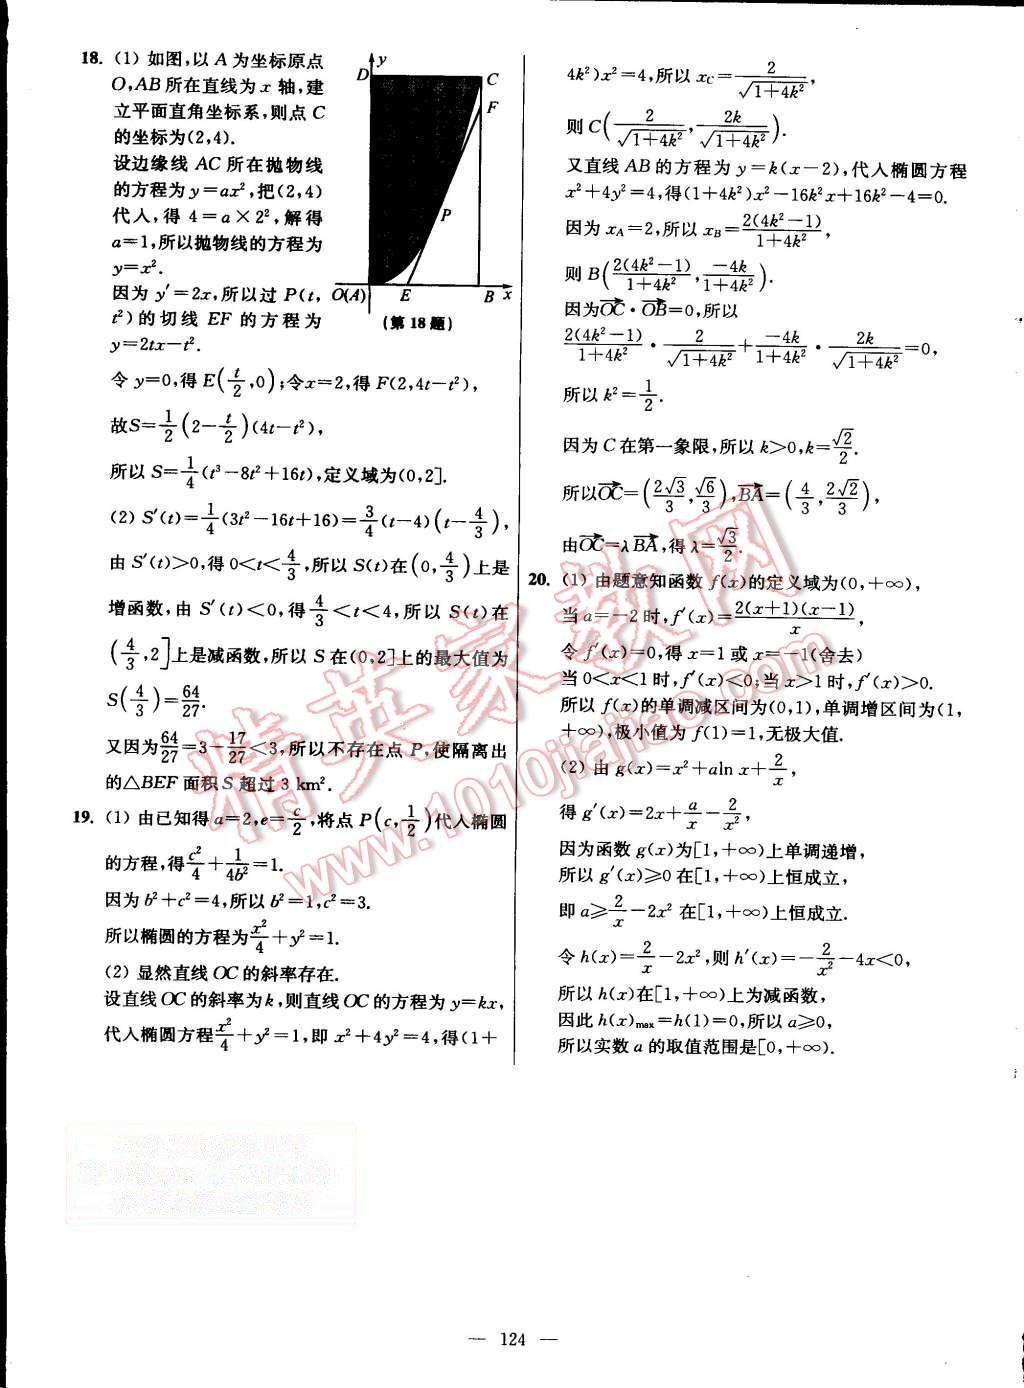 18. (1) 如图,以 A 为坐标原点
O,AB 所在直线为 x 轴,建
立平面直角坐标系,则点 C
的坐标为(2,4).
设边缘线 AC 所在抛物线
的方程为 y=ax²,把(2,4)
代入,得 4=a×2²,解得
a=1,所以抛物线的方程为
y=x².
因为 y′=2x,所以过 P(t,
t²)的切线 EF 的方程为
y=2tx-t².
D
y
C
F
P
O(A)
E
B
x
(第18题)
令 y=0,得 E(t/2,0);令x=2,得 F(2,4t-t²),
故S=1/2(2-t/2)(4t-t²),
所以 S=1/4(t³-8t²+16t),定义域为(0,2].
(2) S′(t)=1/4(3t²-16t+16)=3/4(t-4)(t-4/3),
由 S′(t)>0,得 0<t<4/3,所以 S(t)在(0,4/3)上是
增函数,由 S′(t)<0,得4/3<t<4,所以 S(t)在
(4/3,2]上是减函数,所以 S 在(0,2]上的最大值为
S(4/3)=64/27.
又因为64/27=3-17/27<3,所以不存在点 P,使隔离出
的△BEF 面积 S 超过 3 km².
19. (1) 由已知得 a=2,e=c/2,将点 P(c,1/2)代入椭圆
的方程,得c²/4+1/4b²=1.
因为 b²+c²=4,所以 b²=1,c²=3.
所以椭圆的方程为x²/4+y²=1.
(2) 显然直线 OC 的斜率存在.
设直线 OC 的斜率为 k,则直线 OC 的方程为 y=kx,
代入椭圆方程x²/4+y²=1,即 x²+4y²=4,得(1+
4k²)x²=4,所以 x_C=2/√(1+4k²),
则 C(2/√(1+4k²),2k/√(1+4k²)).
又直线 AB 的方程为 y=k(x-2),代入椭圆方程
x²+4y²=4,得(1+4k²)x²-16k²x+16k²-4=0.
因为 x_A=2,所以 x_B=2(4k²-1)/1+4k²,
则 B(2(4k²-1)/1+4k²,-4k/1+4k²).
因为OC→·OB→=0,所以
2(4k²-1)/1+4k²·2/√(1+4k²)+-4k/1+4k²·2k/√(1+4k²)=0,
所以 k²=1/2.
因为 C 在第一象限,所以 k>0,k=√2/2.
所以OC→=(2√3/3,√6/3),BA→=(4/3,2√2/3),
由OC→=λBA→,得 λ=√3/2.
20. (1) 由题意知函数 f(x)的定义域为(0,+∞),
当 a=-2 时,f′(x)=2(x+1)(x-1)/x,
令 f′(x)=0,得 x=1 或 x=-1(舍去)
当 0<x<1 时,f′(x)<0;当 x>1 时,f′(x)>0.
所以 f(x)的单调减区间为(0,1),单调增区间为(1,
+∞),极小值为 f(1)=1,无极大值.
(2) 由 g(x)=x²+aln x+2/x,
得 g′(x)=2x+a/x-2/x²,
因为函数 g(x)为[1,+∞)上单调递增,
所以 g′(x)≥0 在[1,+∞)上恒成立,
即 a≥2/x-2x² 在[1,+∞)上恒成立.
令 h(x)=2/x-2x²,则 h′(x)=-2/x²-4x<0,
所以 h(x)在[1,+∞)上为减函数,
因此 h(x)max=h(1)=0,所以 a≥0,
所以实数 a 的取值范围是[0,+∞).
精英家教网
www.1010jiajiao.com
— 124 —